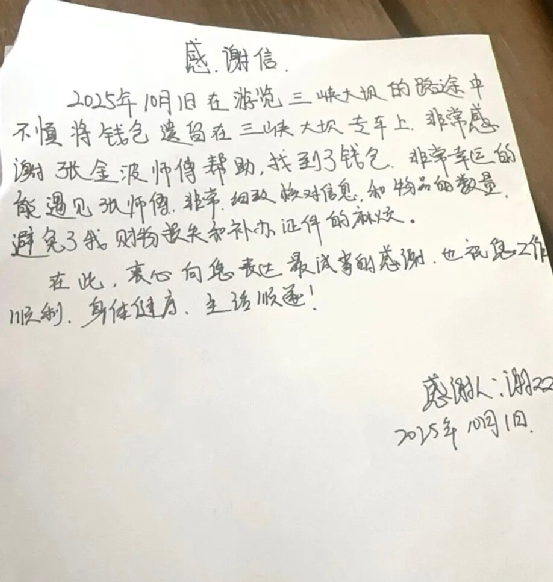 感谢信.
2025年10月1日在游览三峡大坝的路途中
不慎将钱包遗留在三峡大坝专车上.非常感
谢张金波师傅帮助,找到了钱包.非常幸运的
能遇见张师傅.非常.细致核对信息,和物品的数量.
避免了我财物丧失和补办证件的麻烦。
在此,衷心向您表达最诚挚的感谢.也祝您工作
顺利.身体健康.生活顺遂!
感谢人:谢
2025年10月1日.